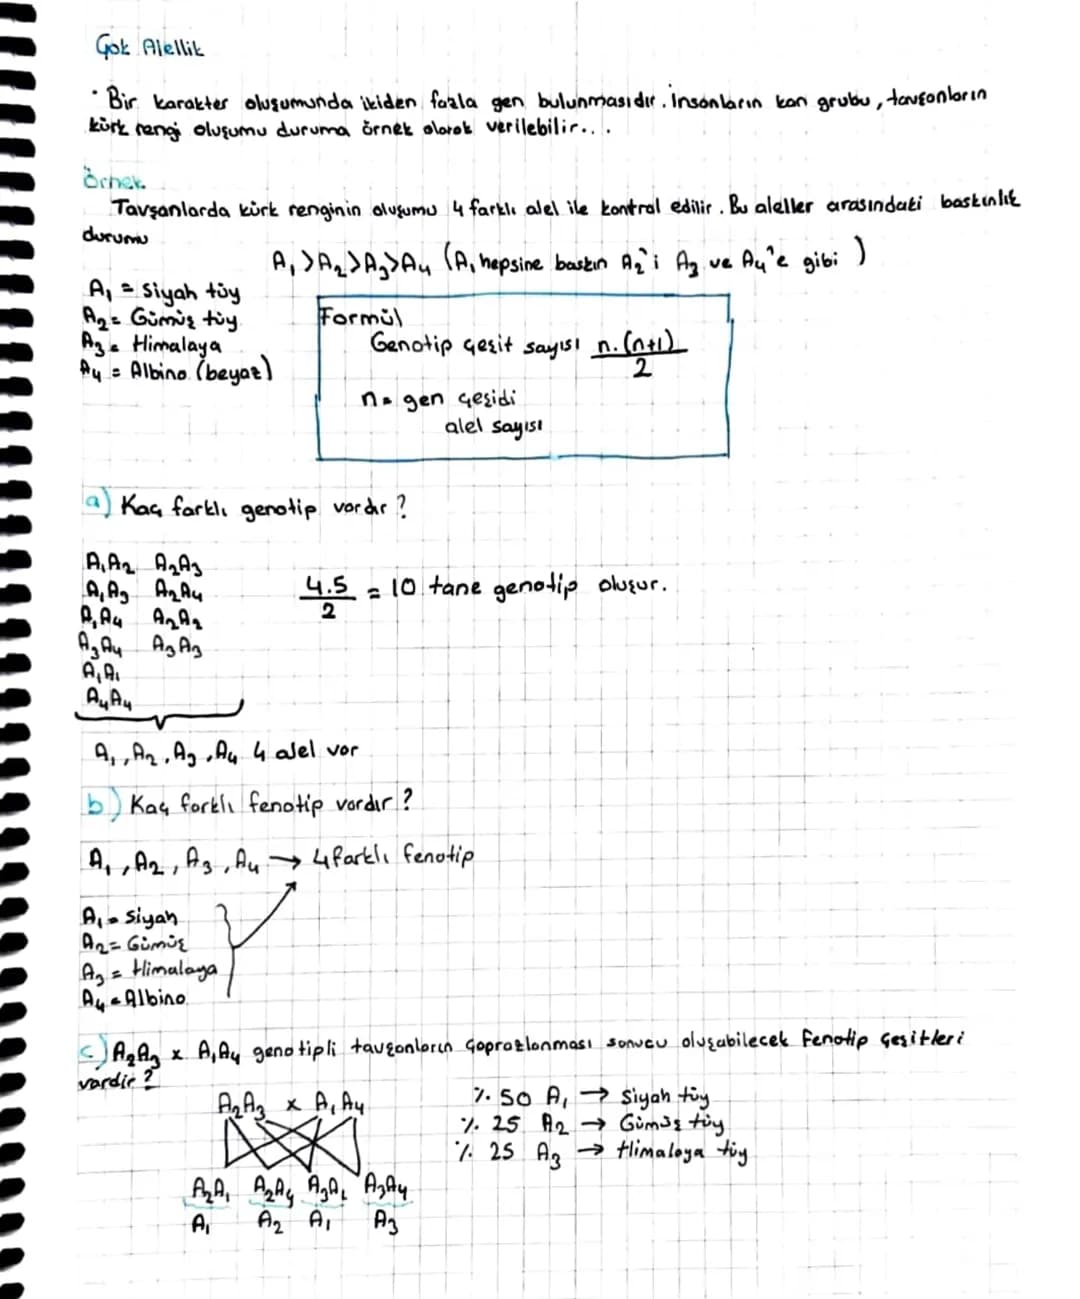 Çok Alellik
• Bir karakter oluşumunda ikiden fazla gen bulunmasıdır. İnsanların kan grubu, tavşanların
kürk rengi oluşumu duruma örnek olarak verilebilir...
Örnek
Tavşanlarda kürk renginin oluşumu 4 farklı alel ile kontrol edilir. Bu aleller arasındaki baskınlık
durumu
A₁>A₂>A₃>A₄ (A₁ hepsine baskın A₂'i A₃ ve A₄'e gibi)
A₁ = Siyah tüy
A₂ = Gümüş tüy
A₃ = Himalaya
A₄ = Albino (beyaz)
Formül
Genotip çeşit sayısı n.(n+1)/2
n = gen çeşidi
alel sayısı
a) Kaç farklı genotip vardır?
A₁A₂ A₂A₃
A₁A₃ A₂A₄
A₁A₄ A₂A₂
A₃A₄ A₃A₃
A₁A₁
A₄A₄
4.5/2 = 10 tane genotip oluşur.
A₁, A₂, A₃, A₄ 4 alel var
b) Kaç farklı fenotip vardır?
A₁, A₂, A₃, A₄ → 4 farklı fenotip
A₁ = Siyah
A₂ = Gümüş
A₃ = Himalaya
A₄ = Albino
c) A₂A₃ x A₁A₄ genotipli tavşanların çaprazlanması sonucu oluşabilecek fenotip çeşitleri
vardir?
A₂A₃ x A₁A₄
A₂A₁ A₂A₄ A₃A₁ A₃A₄
A₁ A₂ A₁ A₃
% 50 A₁ → Siyah tüy
% 25 A₂ → Gümüş tüy
% 25 A₃ → Himalaya tüy